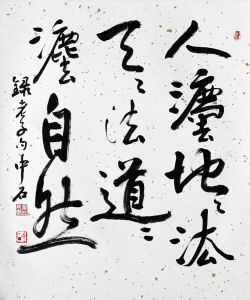 人灋地〻法
天〻法道〻
灋自然
錄老子句中石